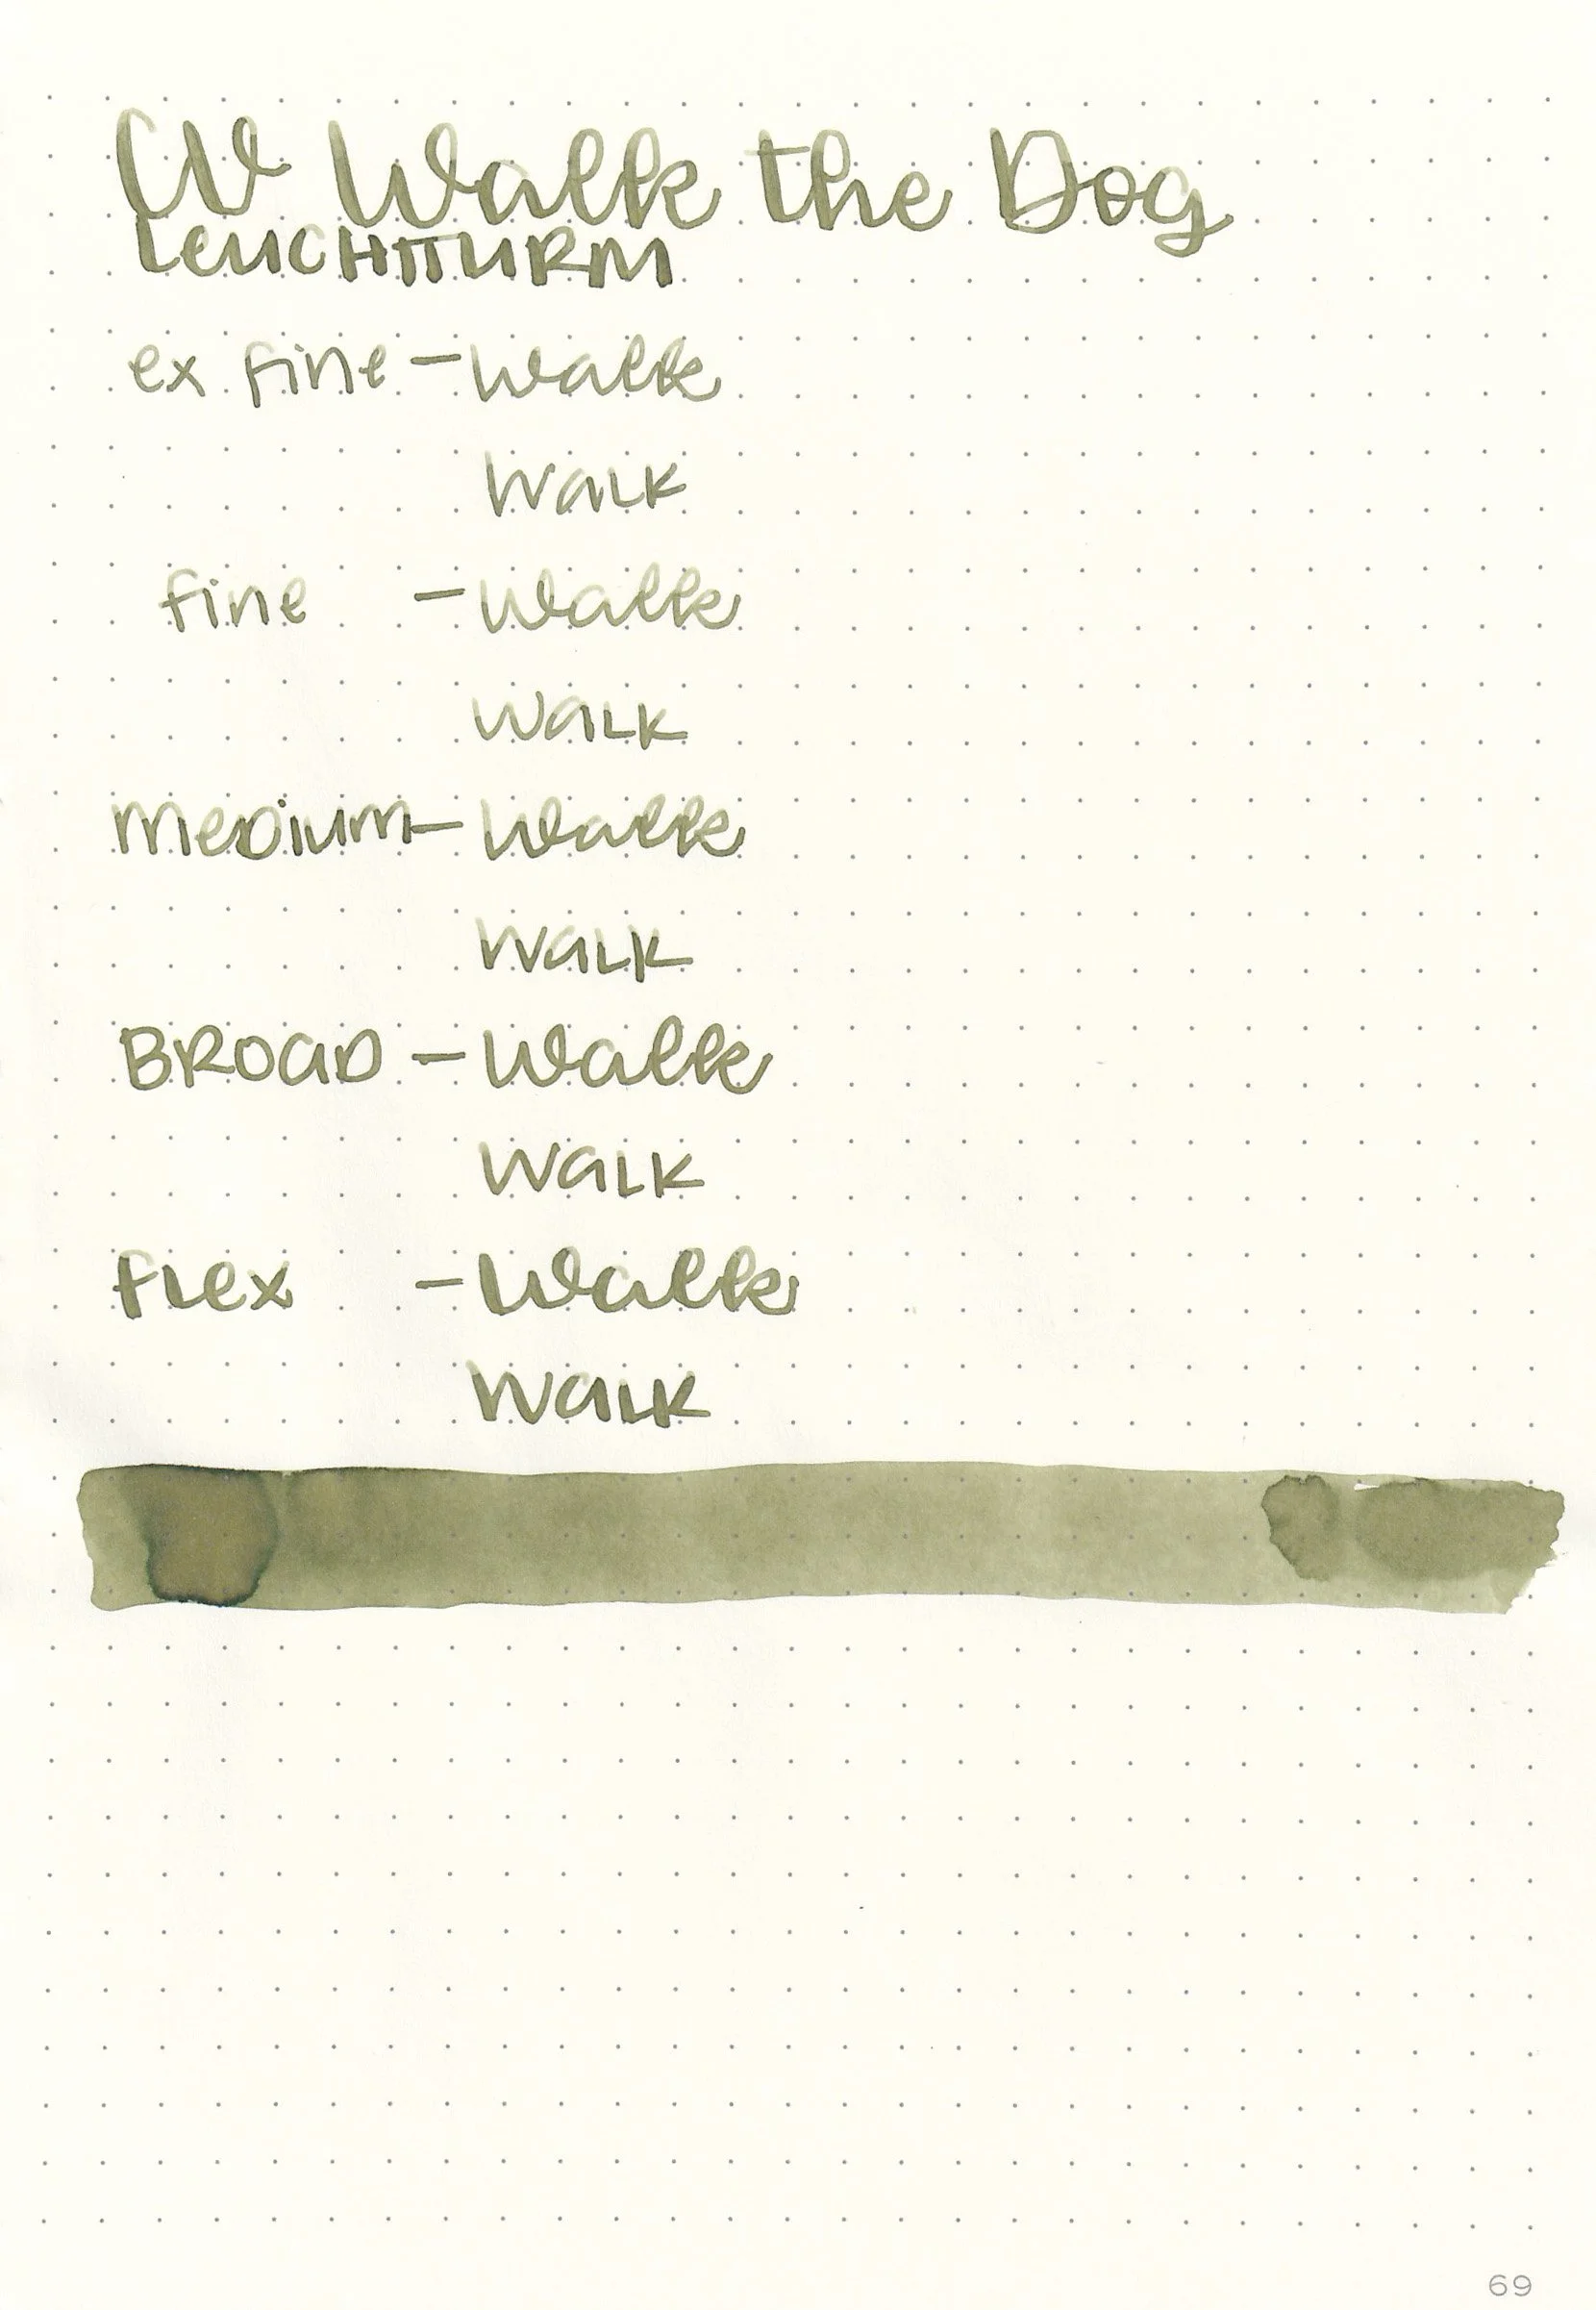 CV Walk the Dog
LEUCHTTURM
ex fine - Walk
WALK
fine - Walk
WALK
MEDIUM - Walk
WALK
BROAD - Walk
WALK
FLEX - Walk
WALK
69